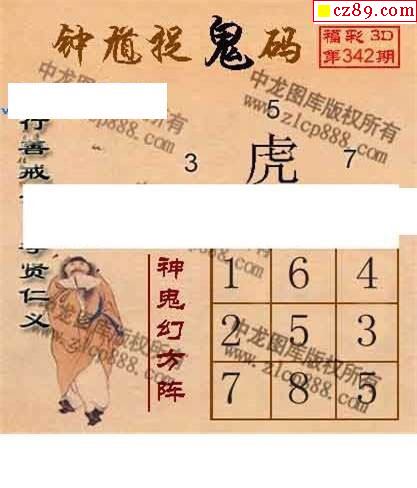 cz89.com
钟馗捉鬼码
福彩 3D
第342期
中龙图库版权所有
www.zlcp888.com
5
3 虎 7
行善戒
贤仁义
神鬼幻方阵
1 6 4
2 5 3
7 8 5
中龙图库版权所有
www.zlcp888.com